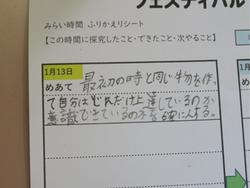 フェスティバル
みらい時間 ふりかえりシート
【この時間に探究したこと・できたこと・次やること】
1月13日
めあて 最初の時と同じ物を作っ
て自分はどれだけ上達しているのか
意識できているのかを確に入する。